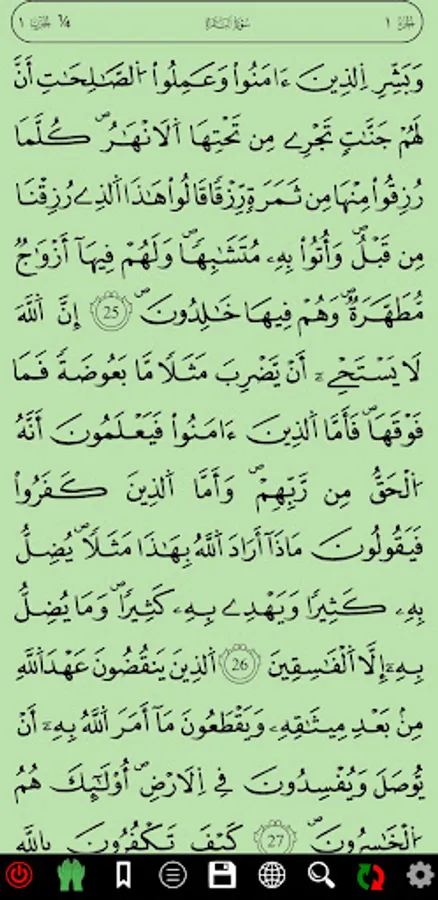 الجزء ١ سورة البقرة ¼ الحزب ١
وَبَشِّرِ اِ۬لذِينَ ءَامَنُواْ وَعَمِلُواْ اُ۬لصَّٰلِحَٰتِ أَنَّ
لَهُمْ جَنَّٰتٖ تَجْرِے مِن تَحْتِهَا اَ۬لَانْهَٰرُۖ كُلَّمَا
رُزِقُواْ مِنْهَا مِن ثَمَرَةٖ رِّزْقاٗ قَالُواْ هَٰذَا اَ۬لذِے رُزِقْنَا
مِن قَبْلُۖ وَأُتُواْ بِهِۦ مُتَشَٰبِهاٗۖ وَلَهُمْ فِيهَآ أَزْوَٰجٞ
مُّطَهَّرَةٞۖ وَهُمْ فِيهَا خَٰلِدُونَۖ 25 إِنَّ اَ۬للَّهَ
لَا يَسْتَحْيِۦٓ أَنْ يَّضْرِبَ مَثَلاٗ مَّا بَعُوضَةٗ فَمَا
فَوْقَهَاۖ فَأَمَّا اَ۬لذِينَ ءَامَنُواْ فَيَعْلَمُونَ أَنَّهُ
اُ۬لْحَقُّ مِن رَّبِّهِمْۖ وَأَمَّا اَ۬لذِينَ كَفَرُواْ
فَيَقُولُونَ مَاذَآ أَرَادَ اَ۬للَّهُ بِهَٰذَا مَثَلاٗۖ يُضِلُّ
بِهِۦ كَثِيراٗ وَيَهْدِے بِهِۦ كَثِيراٗۖ وَمَا يُضِلُّ
بِهِۦٓ إِلَّا اَ۬لْفَٰسِقِينَ 26 اَ۬لذِينَ يَنقُضُونَ عَهْدَ اَ۬للَّهِ
مِنۢ بَعْدِ مِيثَٰقِهِۦ وَيَقْطَعُونَ مَآ أَمَرَ اَ۬للَّهُ بِهِۦٓ أَنْ
يُّوصَلَ وَيُفْسِدُونَ فِے اِ۬لَارْضِۖ أُوْلَٰٓئِكَ هُمُ
اُ۬لْخَٰسِرُونَۖ 27 كَيْفَ تَكْفُرُونَ بِاللَّهِ